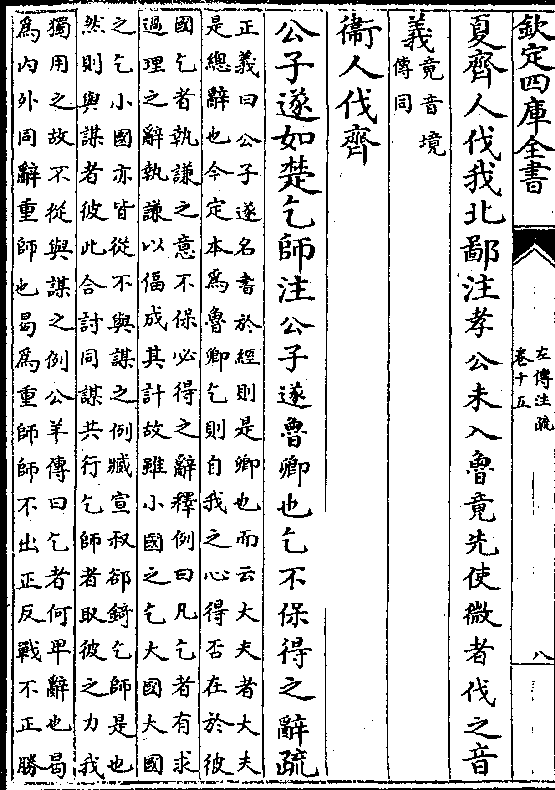 欽定四庫全書
左傳注疏
卷十五
八
夏齊人伐我北鄙注孝公未入魯竟先使微者伐之音
義竟音境
傳同
衞人伐齊
公子遂如楚乞師注公子遂魯卿也乞不保得之辭疏
正義曰公子遂名書於經則是卿也而云大夫者大夫
是總辭也今定本為魯卿乞則自我之心得否在於彼
國乞者執謙之意不保必得之辭釋例曰凡乞者有求
過理之辭執謙以偪成其計故雖小國之乞大國大國
之乞小國亦皆從不與謀之例臧宣叔郤錡乞師是也
然則與謀者彼此合討同謀共行乞師者取彼之力我
獨用之故不從與謀之例公羊傳曰乞者何卑辭也曷
為内外同辭重師也曷為重師師不出正反戰不正勝